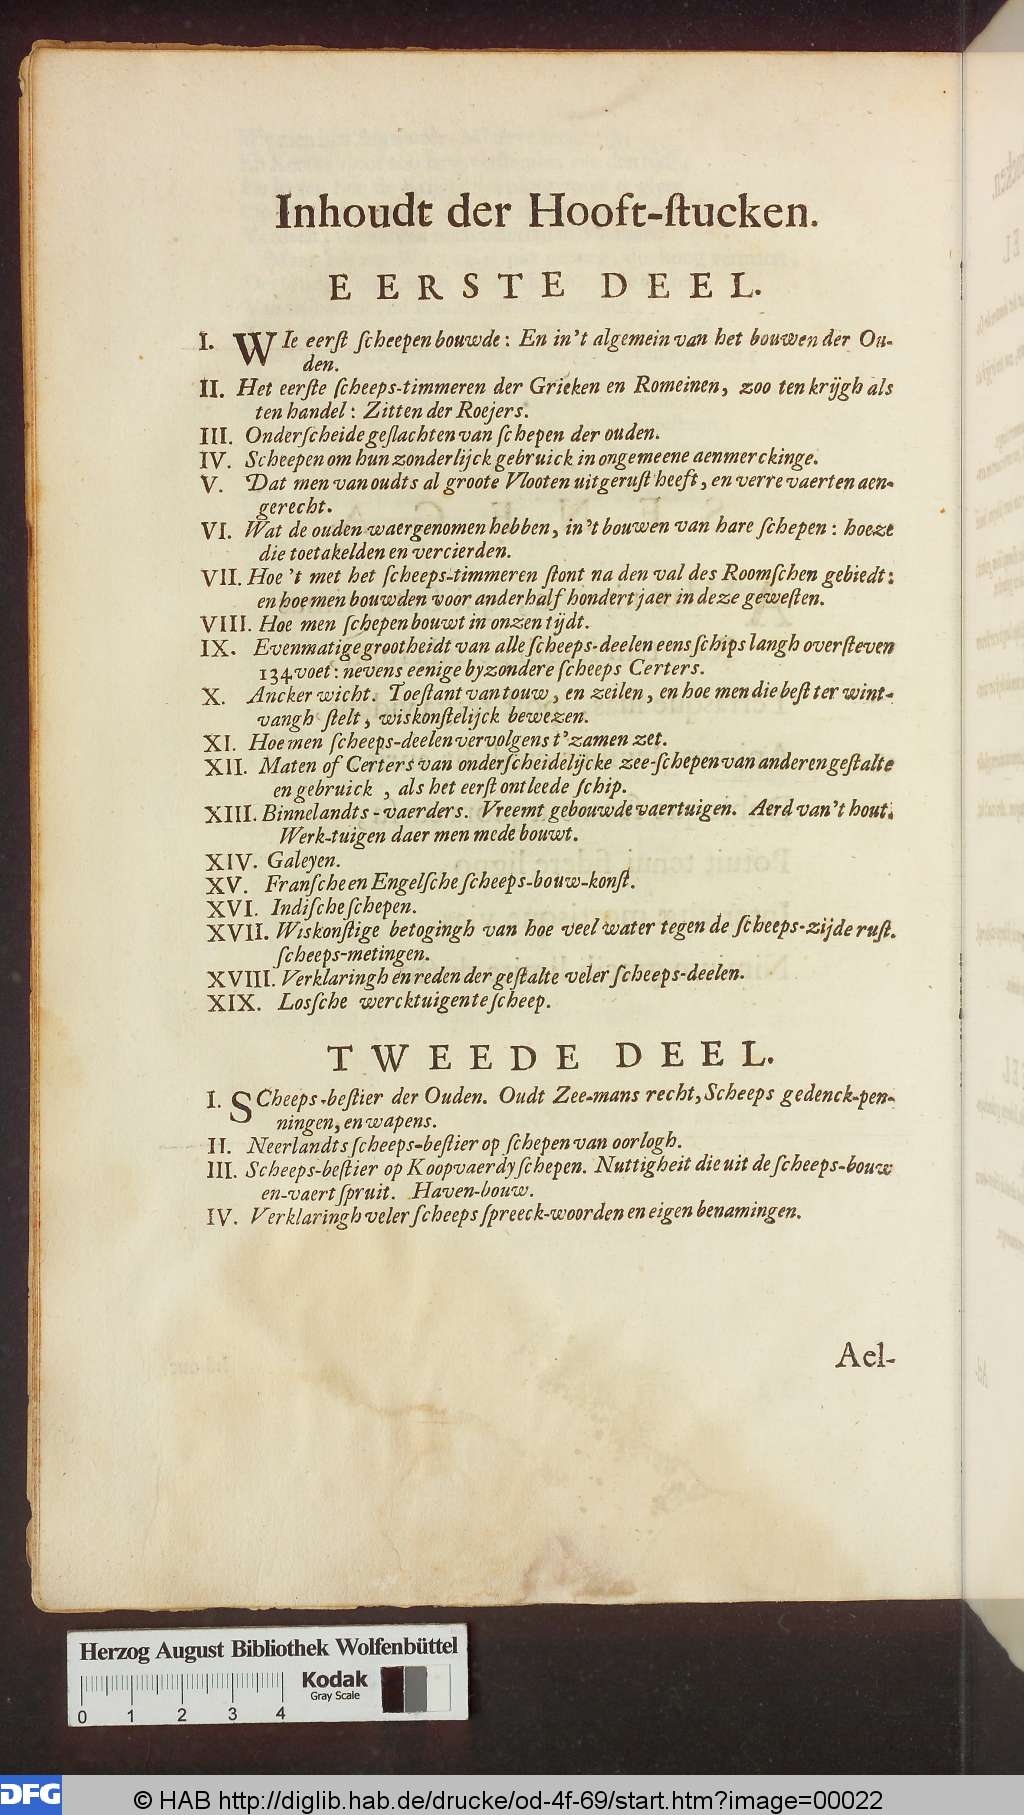 Inhoudt der Hooft-ſtucken.
EERSTE DEEL.
I. WIe eerſt ſcheepen bouwde: En in't algemein van het bouwen der Ou-
den.
II. Het eerſte ſcheeps-timmeren der Grieken en Romeinen, zoo ten krijgh als
ten handel: Zitten der Roejers.
III. Onderſcheide geſlachten van ſchepen der ouden.
IV. Scheepen om hun zonderlijck gebruick in ongemeene aenmerckinge.
V. Dat men van oudts al groote Vlooten uitgeruſt heeft, en verre vaerten aen-
gerecht.
VI. Wat de ouden waergenomen hebben, in't bouwen van hare ſchepen: hoeze
die toetakelden en vercierden.
VII. Hoe 't met het ſcheeps-timmeren ſtont na den val des Roomſchen gebiedt:
en hoe men bouwden voor anderhalf hondert jaer in deze geweſten.
VIII. Hoe men ſchepen bouwt in onzen tijdt.
IX. Evenmatige grootheidt van alle ſcheeps-deelen eens ſchips langh over ſteven
134 voet: nevens eenige byzondere ſcheeps Certers.
X. Ancker wicht. Toeſtant van touw, en zeilen, en hoe men die beſt ter wint-
vangh ſtelt, wiskonſtelijck bewezen.
XI. Hoe men ſcheeps-deelen vervolgens t'zamen zet.
XII. Maten of Certers van onderſcheidelijcke zee-ſchepen van anderen geſtalte
en gebruick, als het eerſt ontleede ſchip.
XIII. Binnelandts-vaerders. Vreemt gebouwde vaertuigen. Aerd van't hout.
Werk-tuigen daer men mede bouwt.
XIV. Galeyen.
XV. Franſche en Engelſche ſcheeps-bouw-konſt.
XVI. Indiſche ſchepen.
XVII. Wiskonſtige betogingh van hoe veel water tegen de ſcheeps-zijde ruſt.
ſcheeps-metingen.
XVIII. Verklaringh en reden der geſtalte veler ſcheeps-deelen.
XIX. Losſche wercktuigen te ſcheep.
TWEEDE DEEL.
I. SCheeps-beſtier der Ouden. Oudt Zee-mans recht, Scheeps gedenck-pen-
ningen, en wapens.
II. Neerlandts ſcheeps-beſtier op ſchepen van oorlogh.
III. Scheeps-beſtier op Koopvaerdy ſchepen. Nuttigheit die uit de ſcheeps-bouw
en-vaert ſpruit. Haven-bouw.
IV. Verklaringh veler ſcheeps ſpreeck-woorden en eigen benamingen.
Ael-
Herzog August Bibliothek Wolfenbüttel
Kodak
Gray Scale
0 1 2 3 4
DFG
© HAB http://diglib.hab.de/drucke/od-4f-69/start.htm?image=00022